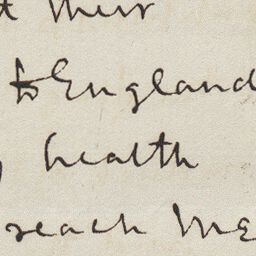 their
to England
health
reach me